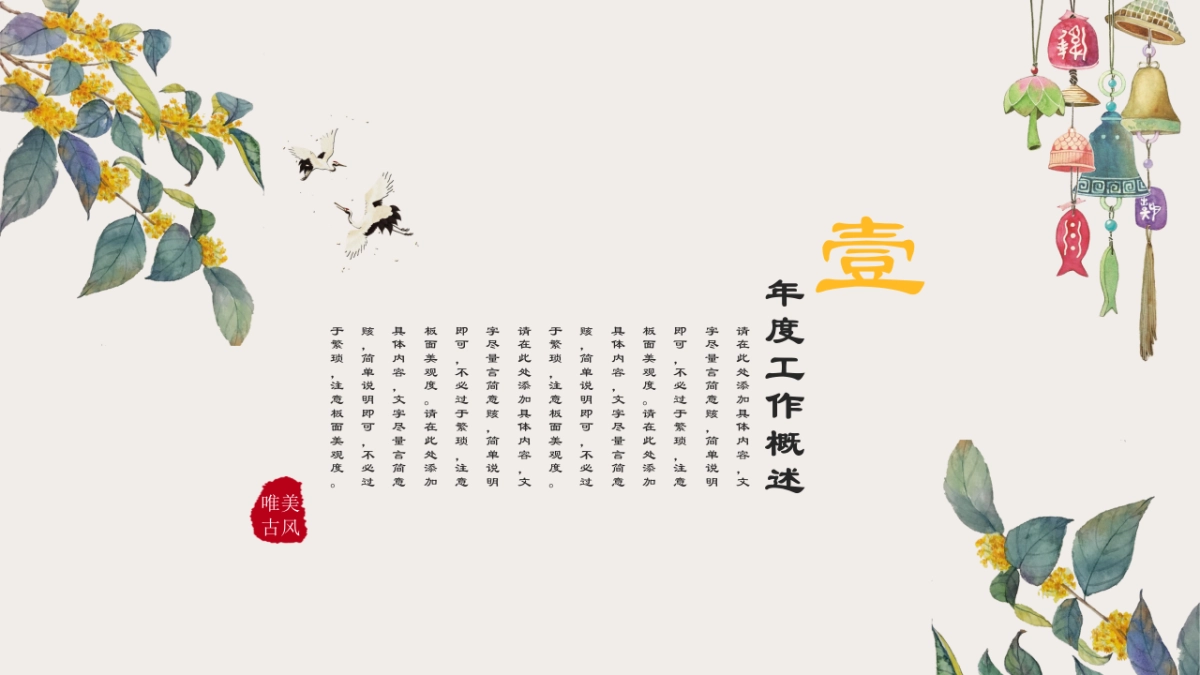 壹
年度工作概述
请在此处添加具体内容,文
字尽量言简意赅,简单说明
即可,不必过于繁琐,注意
板面美观度。请在此处添加
具体内容,文字尽量言简意
赅,简单说明即可,不必过
于繁琐,注意板面美观度。
请在此处添加具体内容,文
字尽量言简意赅,简单说明
即可,不必过于繁琐,注意
板面美观度。请在此处添加
具体内容,文字尽量言简意
赅,简单说明即可,不必过
于繁琐,注意板面美观度。
唯美
古风